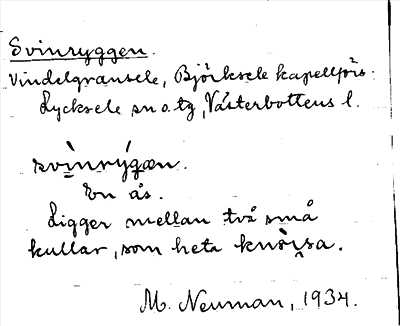 Svinryggen.
Vindelgransele, Björksele kapellförs:
Lycksele sn o. tg, Västerbottens l.
svìnrýgæn.
En ås.
Ligger mellan två små
kullar, som heta
M. Neuman, 1934.